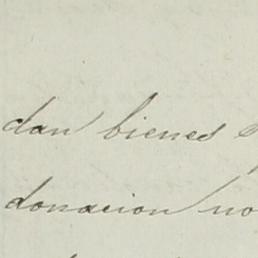 dan bienes
donacion no